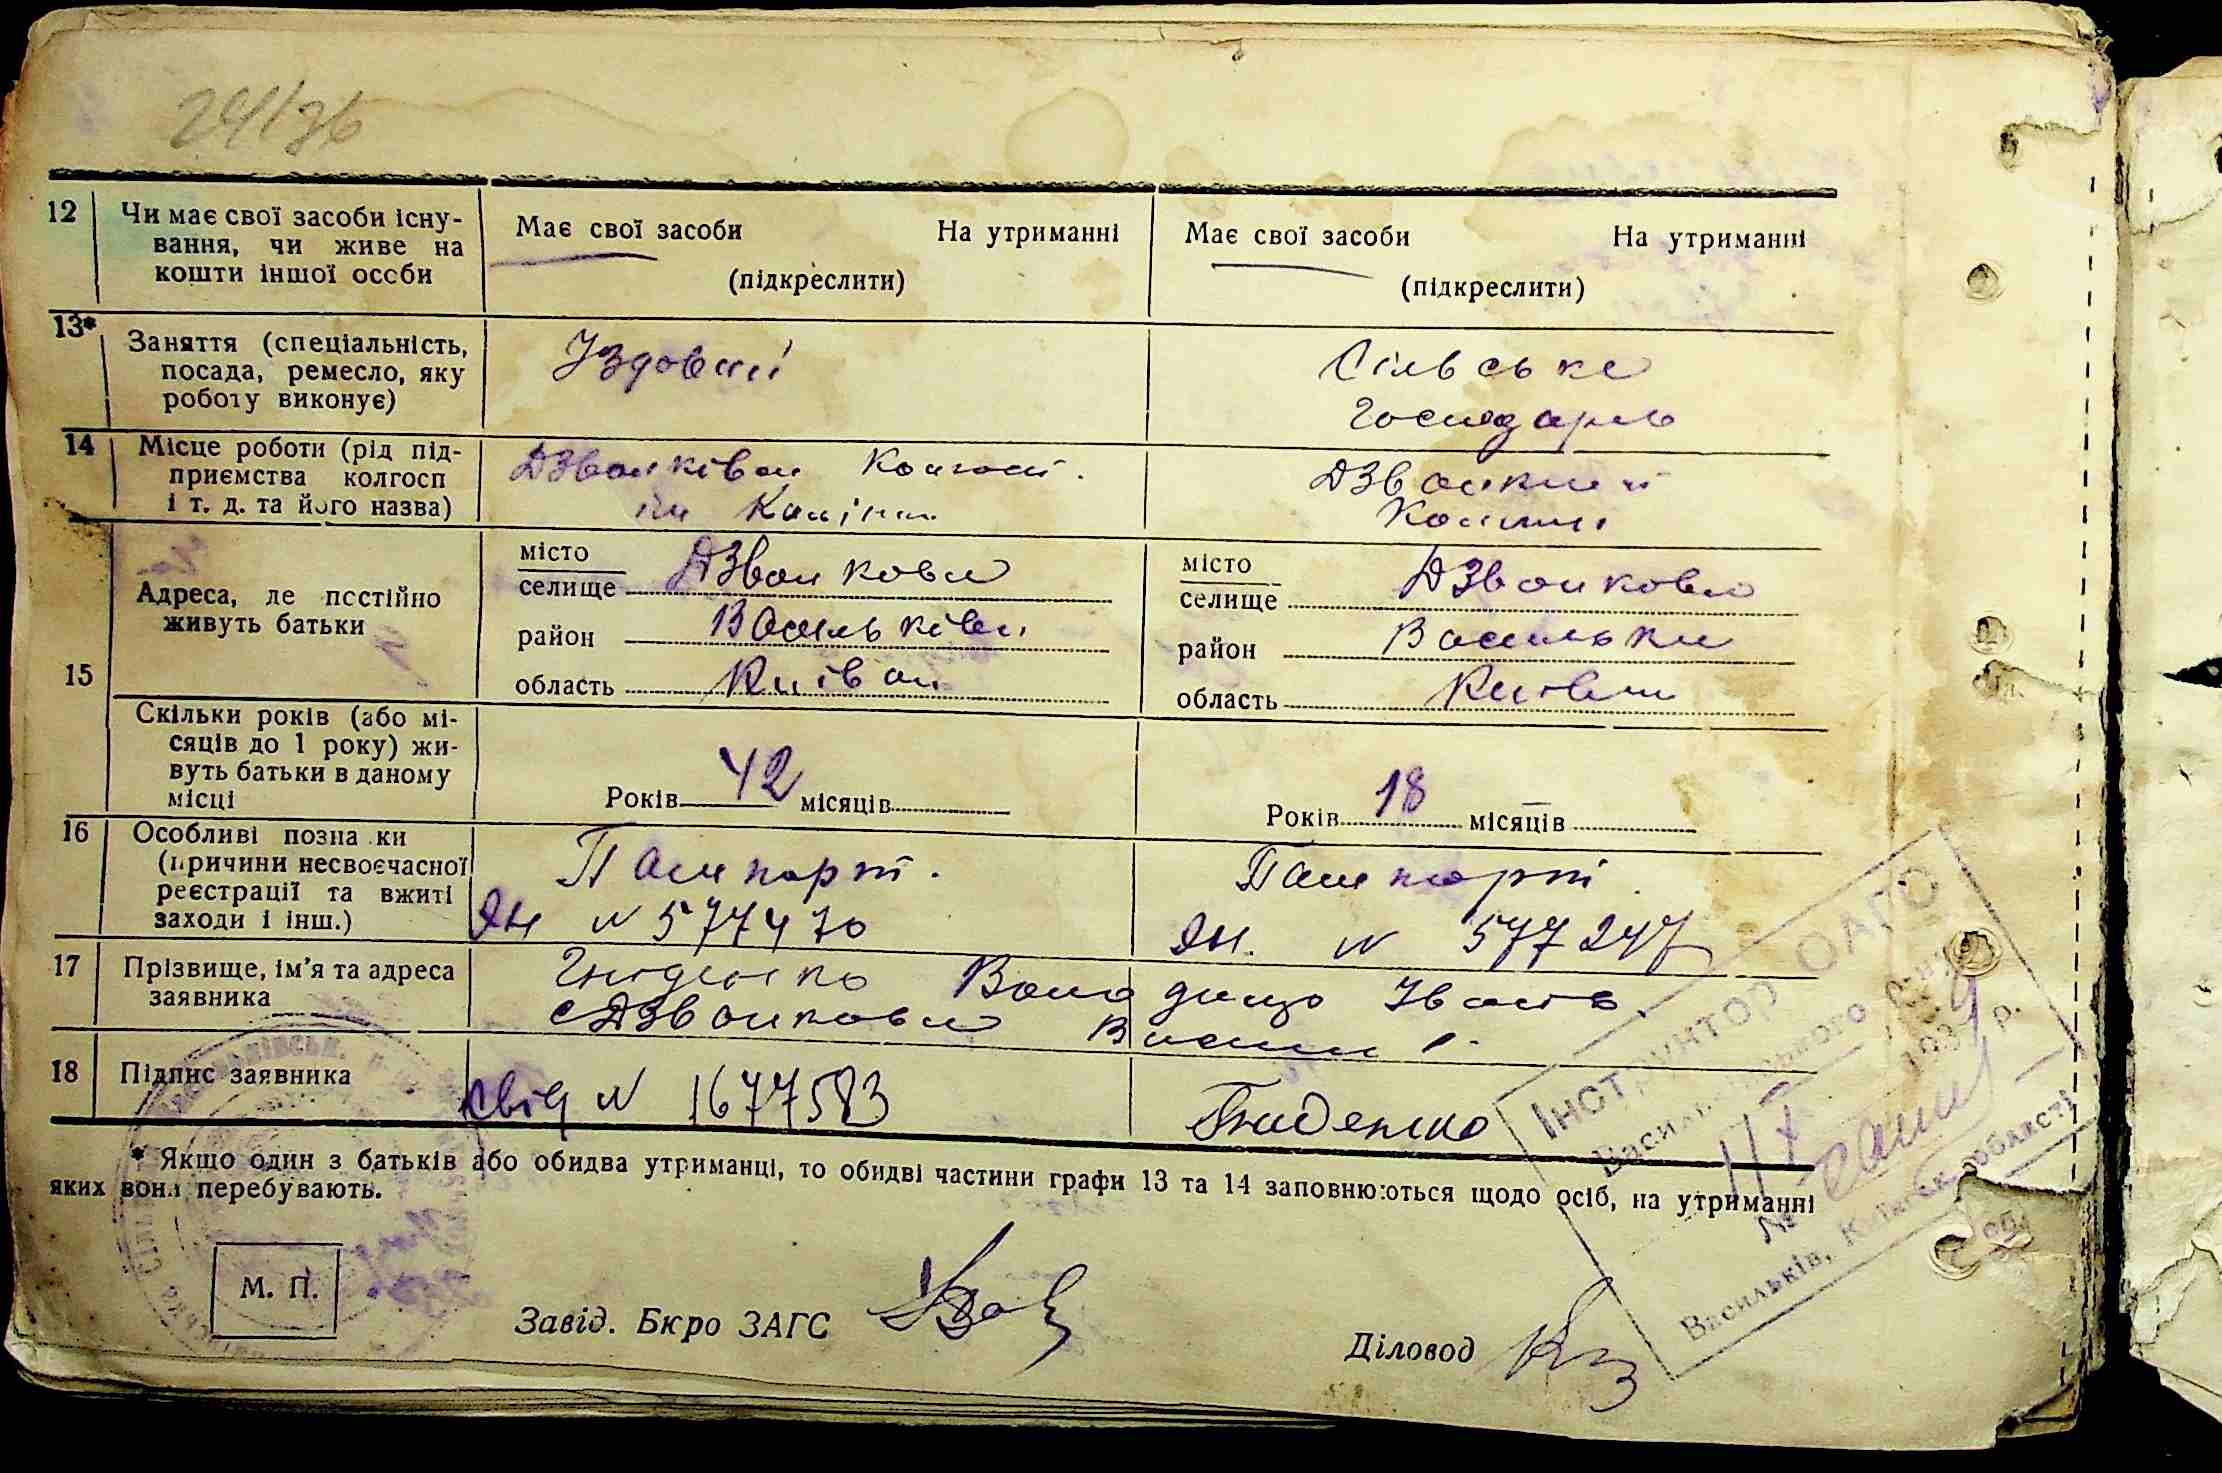 24/36
12 Чи має свої засоби існу-
вання, чи живе на
кошти іншої особи
Має свої засоби На утриманні
(підкреслити)
Має свої засоби На утриманні
(підкреслити)
13* Заняття (спеціальність,
посада, ремесло, яку
роботу виконує)
Їздовий
Сільське
Господарс
14 Місце роботи (рід під-
приємства колгосп
і т. д. та його назва)
Дзвонківсн Колгосп.
Дзвонкин
15 Адреса, де постійно
живуть батьки
місто
селище Дзвонкова
район Васильківсн
область Київсн
місто
селище Дзвонкова
район Васильки
область Київсн
Скільки років (або мі-
сяців до 1 року) жи-
вуть батьки в даному
місці
Років 42 місяців
Років 18 місяців —
16 Особливі позна ки
(причини несвоєчасної
реєстрації та вжиті
заходи і інш.)
Пашпорт.
ЯН N 577470
Пашпорт.
ЯН. N 577247
17 Прізвище, ім'я та адреса
заявника
Гніденко Іванов
с Дзвонкова
18 Підпис заявника
свід N 1677583
Гниденко
* Якщо один з батьків або обидва утриманці, то обидві частини графи 13 та 14 заповнюються щодо осіб, на утриманні
яких вони перебувають.
М. П.
Завід. Бюро ЗАГС
Діловод
Інструктор ОАГС
Васильківського
193 р.
№
Васильків, Київськ. області